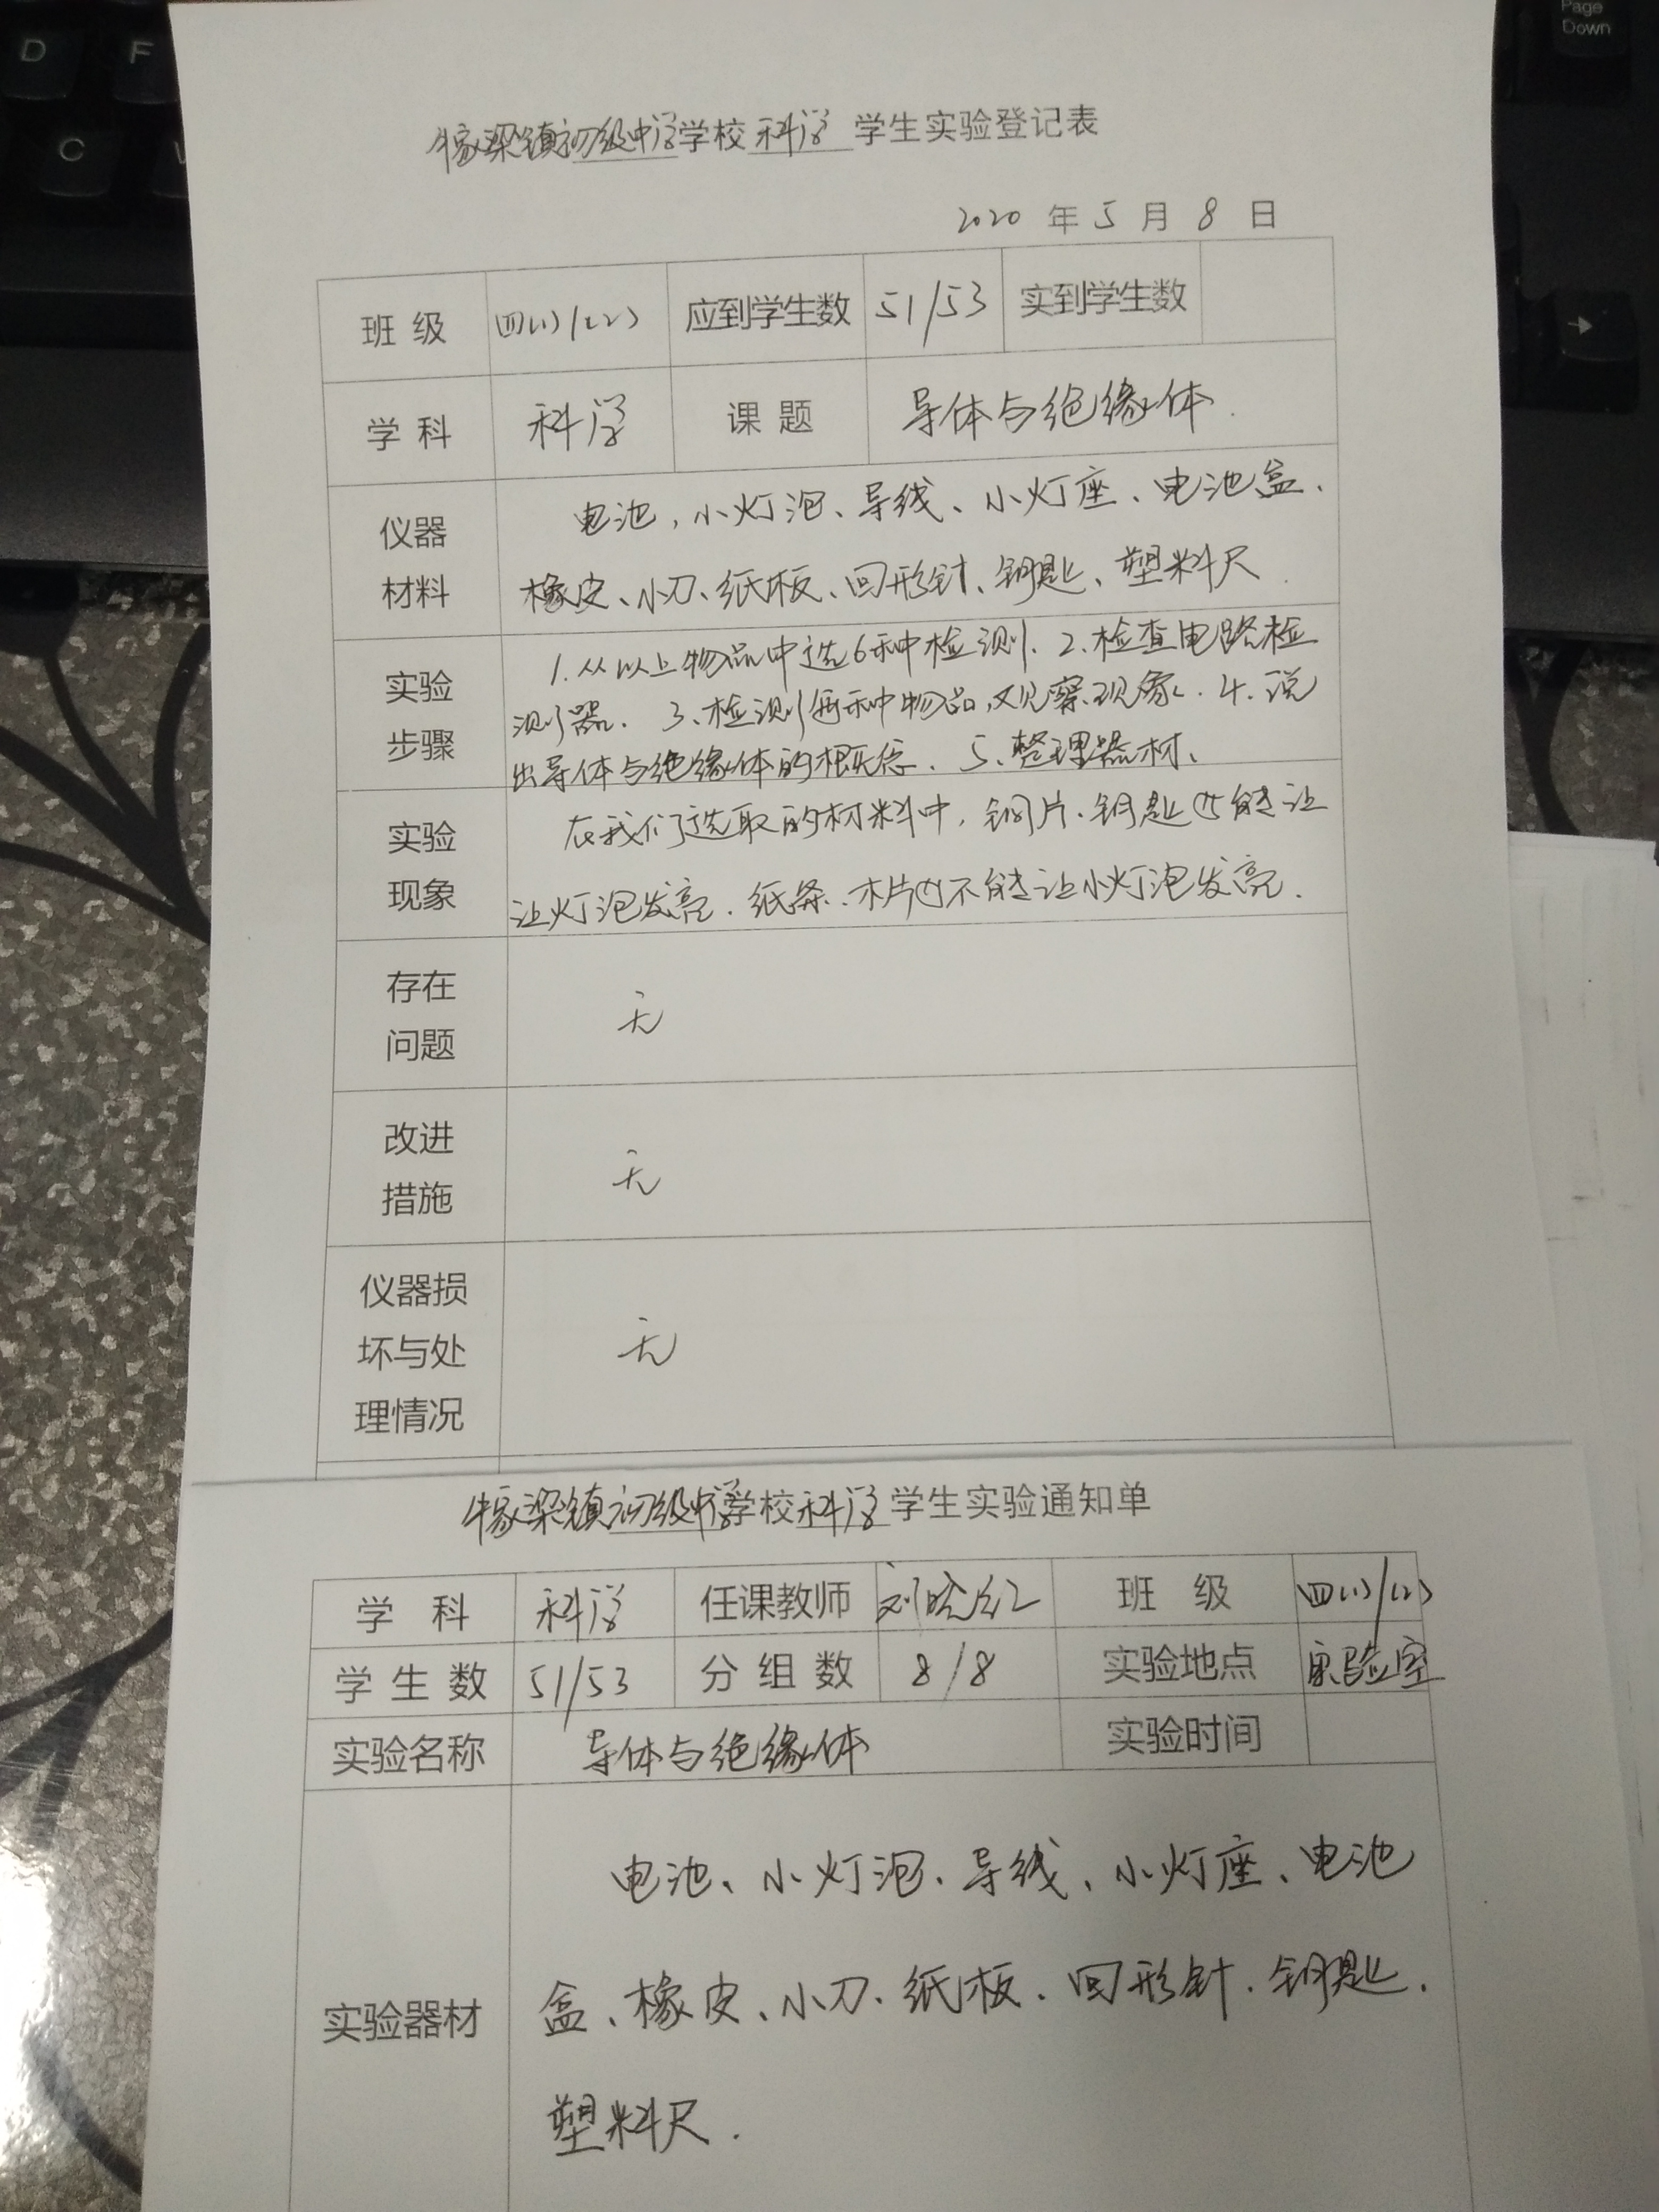 D F
C
Page
Down
→
牛家梁镇初级中学学校 科学 学生实验登记表
2020 年 5 月 8 日
班 级 四(1)/(2) 应到学生数 51/53 实到学生数
学 科 科学 课 题 导体与绝缘体.
仪器
材料
电池,小灯泡、导线、小灯座、电池盒、
橡皮、小刀、纸板、回形针、钥匙、塑料尺.
实验
步骤
1.从以上物品中选6种检测、2.检查电路检
测器. 3、检测两种物品,观察现象. 4.说
出导体与绝缘体的概念. 5、整理器材、
实验
现象
在我们选取的材料中,铜片、钥匙 能让
让灯泡发亮.纸条、木片 不能让小灯泡发亮.
存在
问题
无
改进
措施
无
仪器损
坏与处
理情况
无
牛家梁镇初级中学学校科学 学生实验通知单
学 科 科学 任课教师 刘晓红 班 级 四(1)/(2)
学 生 数 51/53 分 组 数 8/8 实验地点 实验室
实验名称 导体与绝缘体 实验时间
实验器材
电池、小灯泡、导线、小灯座、电池
盒、橡皮、小刀、纸板、回形针、钥匙、
塑料尺.